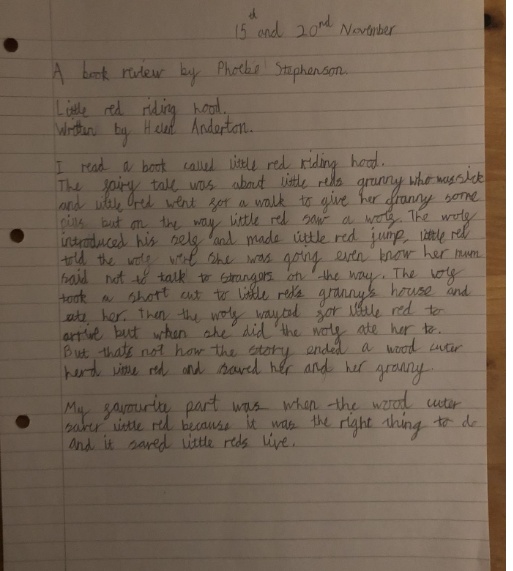 15 d and 20nd November
A book review by Phoebe Stephenson.
Little red riding hood.
Written by Helen Anderton.
I read a book called little red riding hood.
The fairy tale was about little reds granny who was sick
and little red went for a walk to give her granny some
but on the way little red saw a wolf. The wolf
introduced his self and made little red jump, little red
told the wolf were she was going even know her mum
said not to talk to strangers on the way. The wolf
took a short cut to little red's granny's house and
ate her. Then the wolf wayted for little red to
arrive but when she did the wolf ate her to.
But thats not how the story ended a wood cuter
herd little red and saved her and her granny.
My favourite part was when the wood cuter
little red because it was the right thing to do
and it saved little reds live.